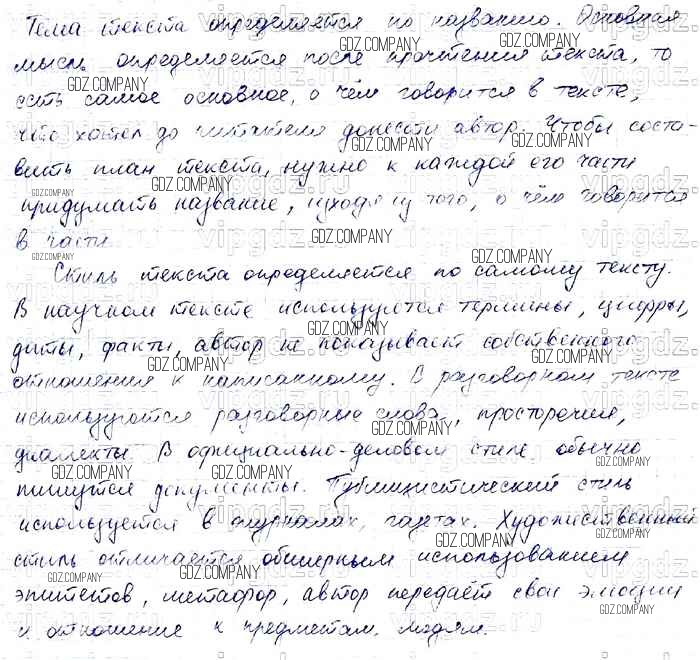 Тема текста определяется по названию. Основная
мысль определяется после прочтения текста, то
есть самое основное, о чём говорится в тексте,
что хотел до читателя донести автор. Чтобы соста-
вить план текста, нужно к каждой его части
придумать название, исходя из того, о чём говорится
в части.
Стиль текста определяется по самому тексту.
В научном тексте используются термины, цифры,
даты, факты, автор не показывает собственного
отношения к написанному. В разговорном тексте
используются разговорные слова, просторечия,
диалекты. В официально-деловом стиле обычно
пишутся документы. Публицистический стиль
используется в журналах, газетах. Художественный
стиль отличается обширным использованием
эпитетов, метафор, автор передаёт свои эмоции
и отношение к предметам, людям.